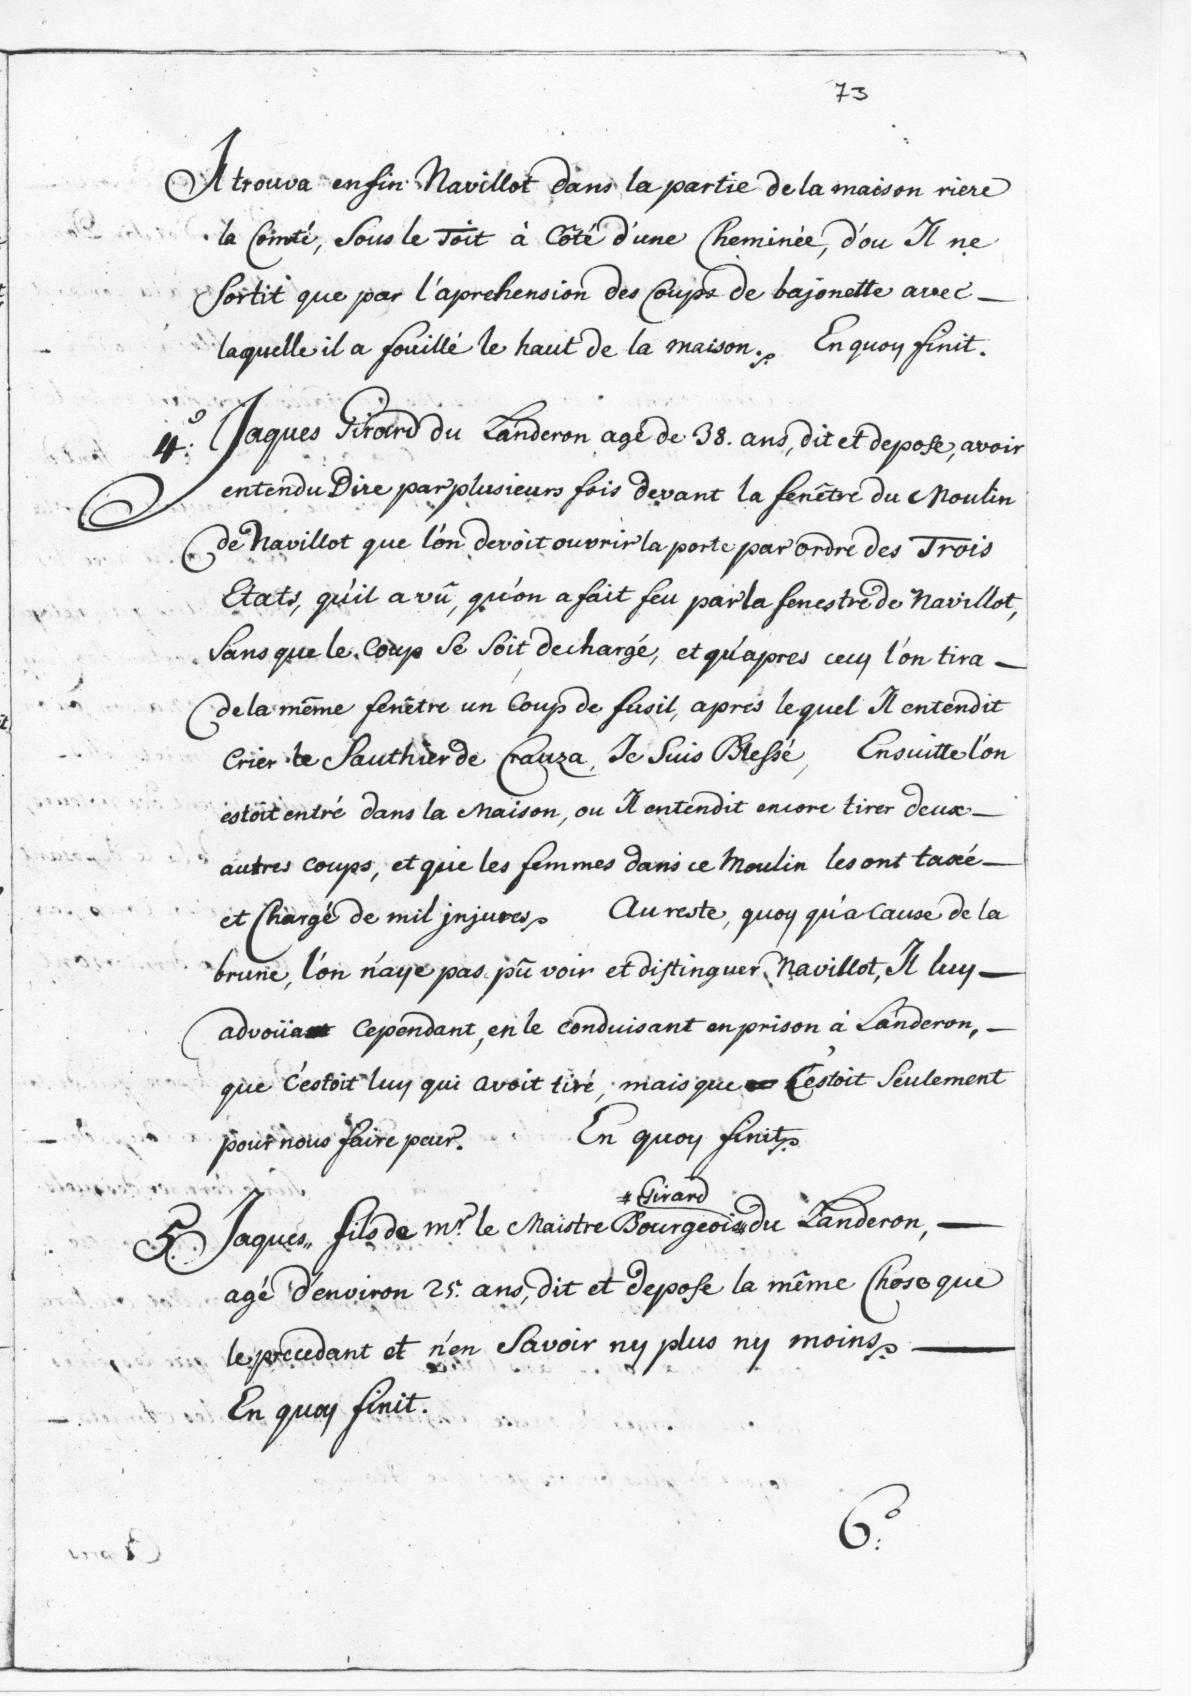 73
Il trouva enfin Navillot dans la partie de la maison riere
la Comté, sous le Toit à Côté d'une Cheminée, d'ou Il ne
sortit que par l'aprehension des Coups de bajonette avec
laquelle il a fouillé le haut de la maison. En quoy finit.
4.º Jaques Girard du Landeron agé de 38. ans, dit et depose, avoir
entendu Dire par plusieurs fois devant la fenêtre du Moulin
de Navillot que l'on devoit ouvrir la porte par ordre des Trois
Etats, qu'il a vû, qu'on a fait feu par la fenestre de Navillot,
sans que le Coup se soit dechargé, et qu'apres cecy l'on tira
de la même fenêtre un Coup de fusil, apres lequel Il entendit
crier le Sauthier de Crauza, Je Suis Blessé, Ensuitte l'on
estoit entré dans la Maison, ou Il entendit encore tirer deux
autres coups, et que les femmes dans ce Moulin les ont taxé
et Chargé de mil jnjures. Au reste, quoy qu'a Cause de la
brune, l'on n'aye pas pû voir et distinguer Navillot, Il luy
advoüa Cependant, en le conduisant en prison à Landeron,
que c'estoit luy qui avoit tiré, mais que C'estoit Seulement
pour nous faire peur. En quoy finit
# Girard
5 Jaques,, fils de Mr. le Maistre Bourgeois # du Landeron,
agé d'environ 25. ans, dit et depose la même Chose que
le precedant et n'en Savoir ny plus ny moins
En quoy finit.
6.º